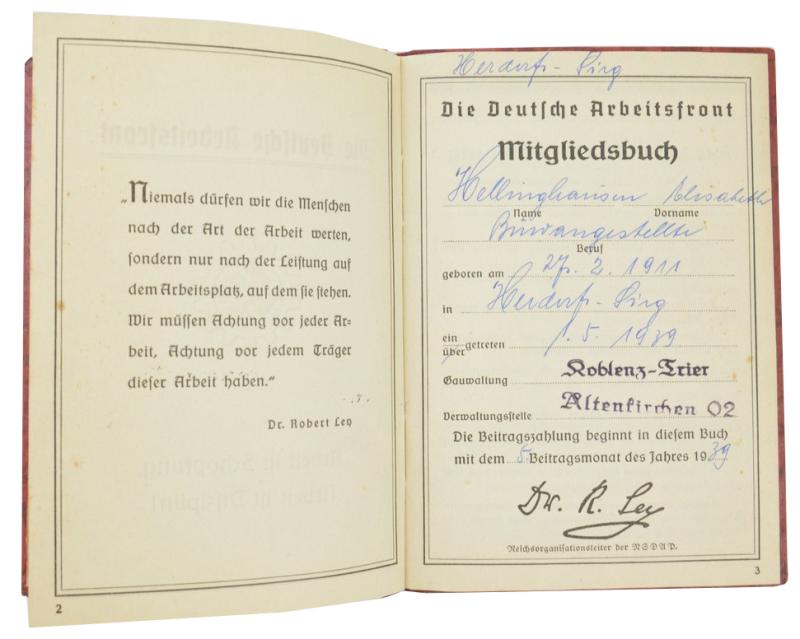 „Niemals dürfen wir die Menschen
nach der Art der Arbeit werten,
sondern nur nach der Leistung auf
dem Arbeitsplatz, auf dem sie stehen.
Wir müssen Achtung vor jeder Ar-
beit, Achtung vor jedem Träger
dieser Arbeit haben.“
Dr. Robert Ley
2
Herdorf-Sieg
Die Deutsche Arbeitsfront
Mitgliedsbuch
Hellinghausen Elisabeth
Name Vorname
Büroangestellte
Beruf
geboren am 27. 2. 1911
in Herdorf-Sieg
ein
über getreten 1. 5. 1939
Gauwaltung Koblenz-Trier
Verwaltungsstelle Altenkirchen 02
Die Beitragszahlung beginnt in diesem Buch
mit dem 5. Beitragsmonat des Jahres 1939
Dr. R. Ley
Reichsorganisationsleiter der NSDAP.
3